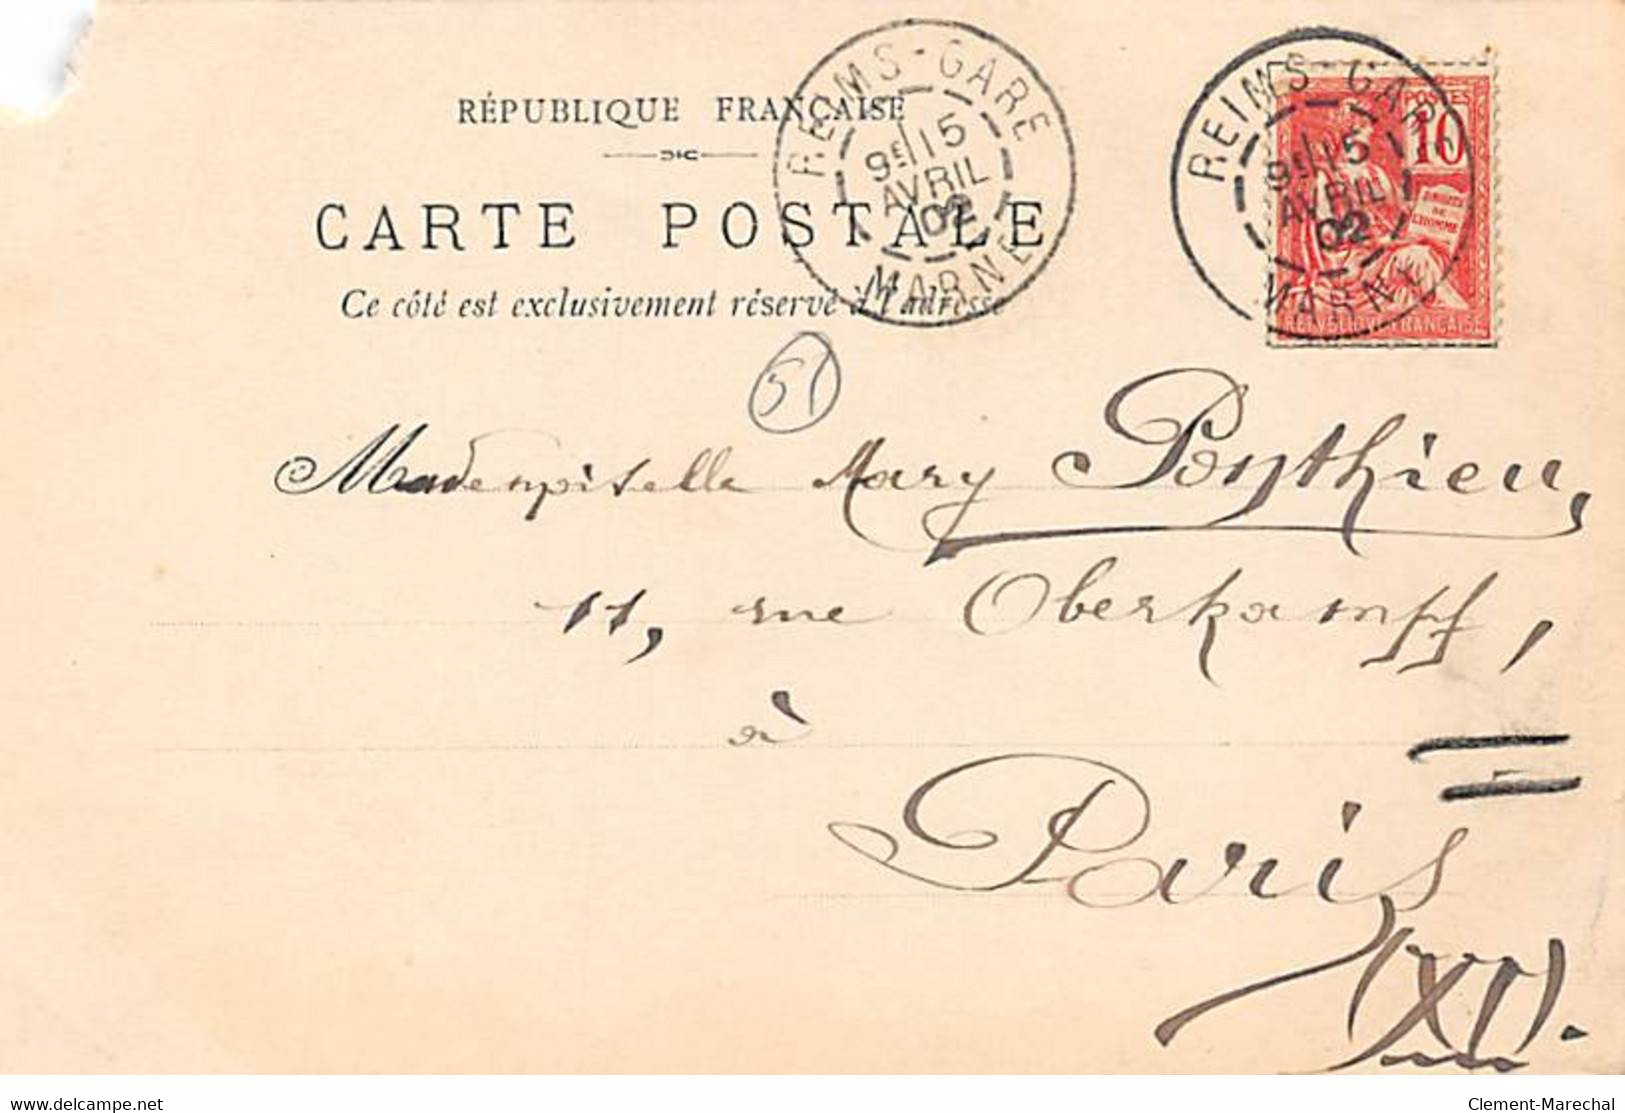 RÉPUBLIQUE FRANÇAISE
CARTE POSTALE
Ce côté est exclusivement réservé à l'adresse
REIMS-GARE
9E 15
AVRIL
02
MARNE
REIMS-GARE
9E 15
AVRIL
02
MARNE
POSTES
10
DROITS
DE
L'HOMME
REPVBLIQVE FRANÇAISE
51
Mademoiselle Mary Ponthieu,
11, rue Oberkampf,
à
Paris
(XI).
www.delcampe.net
Clement-Marechal